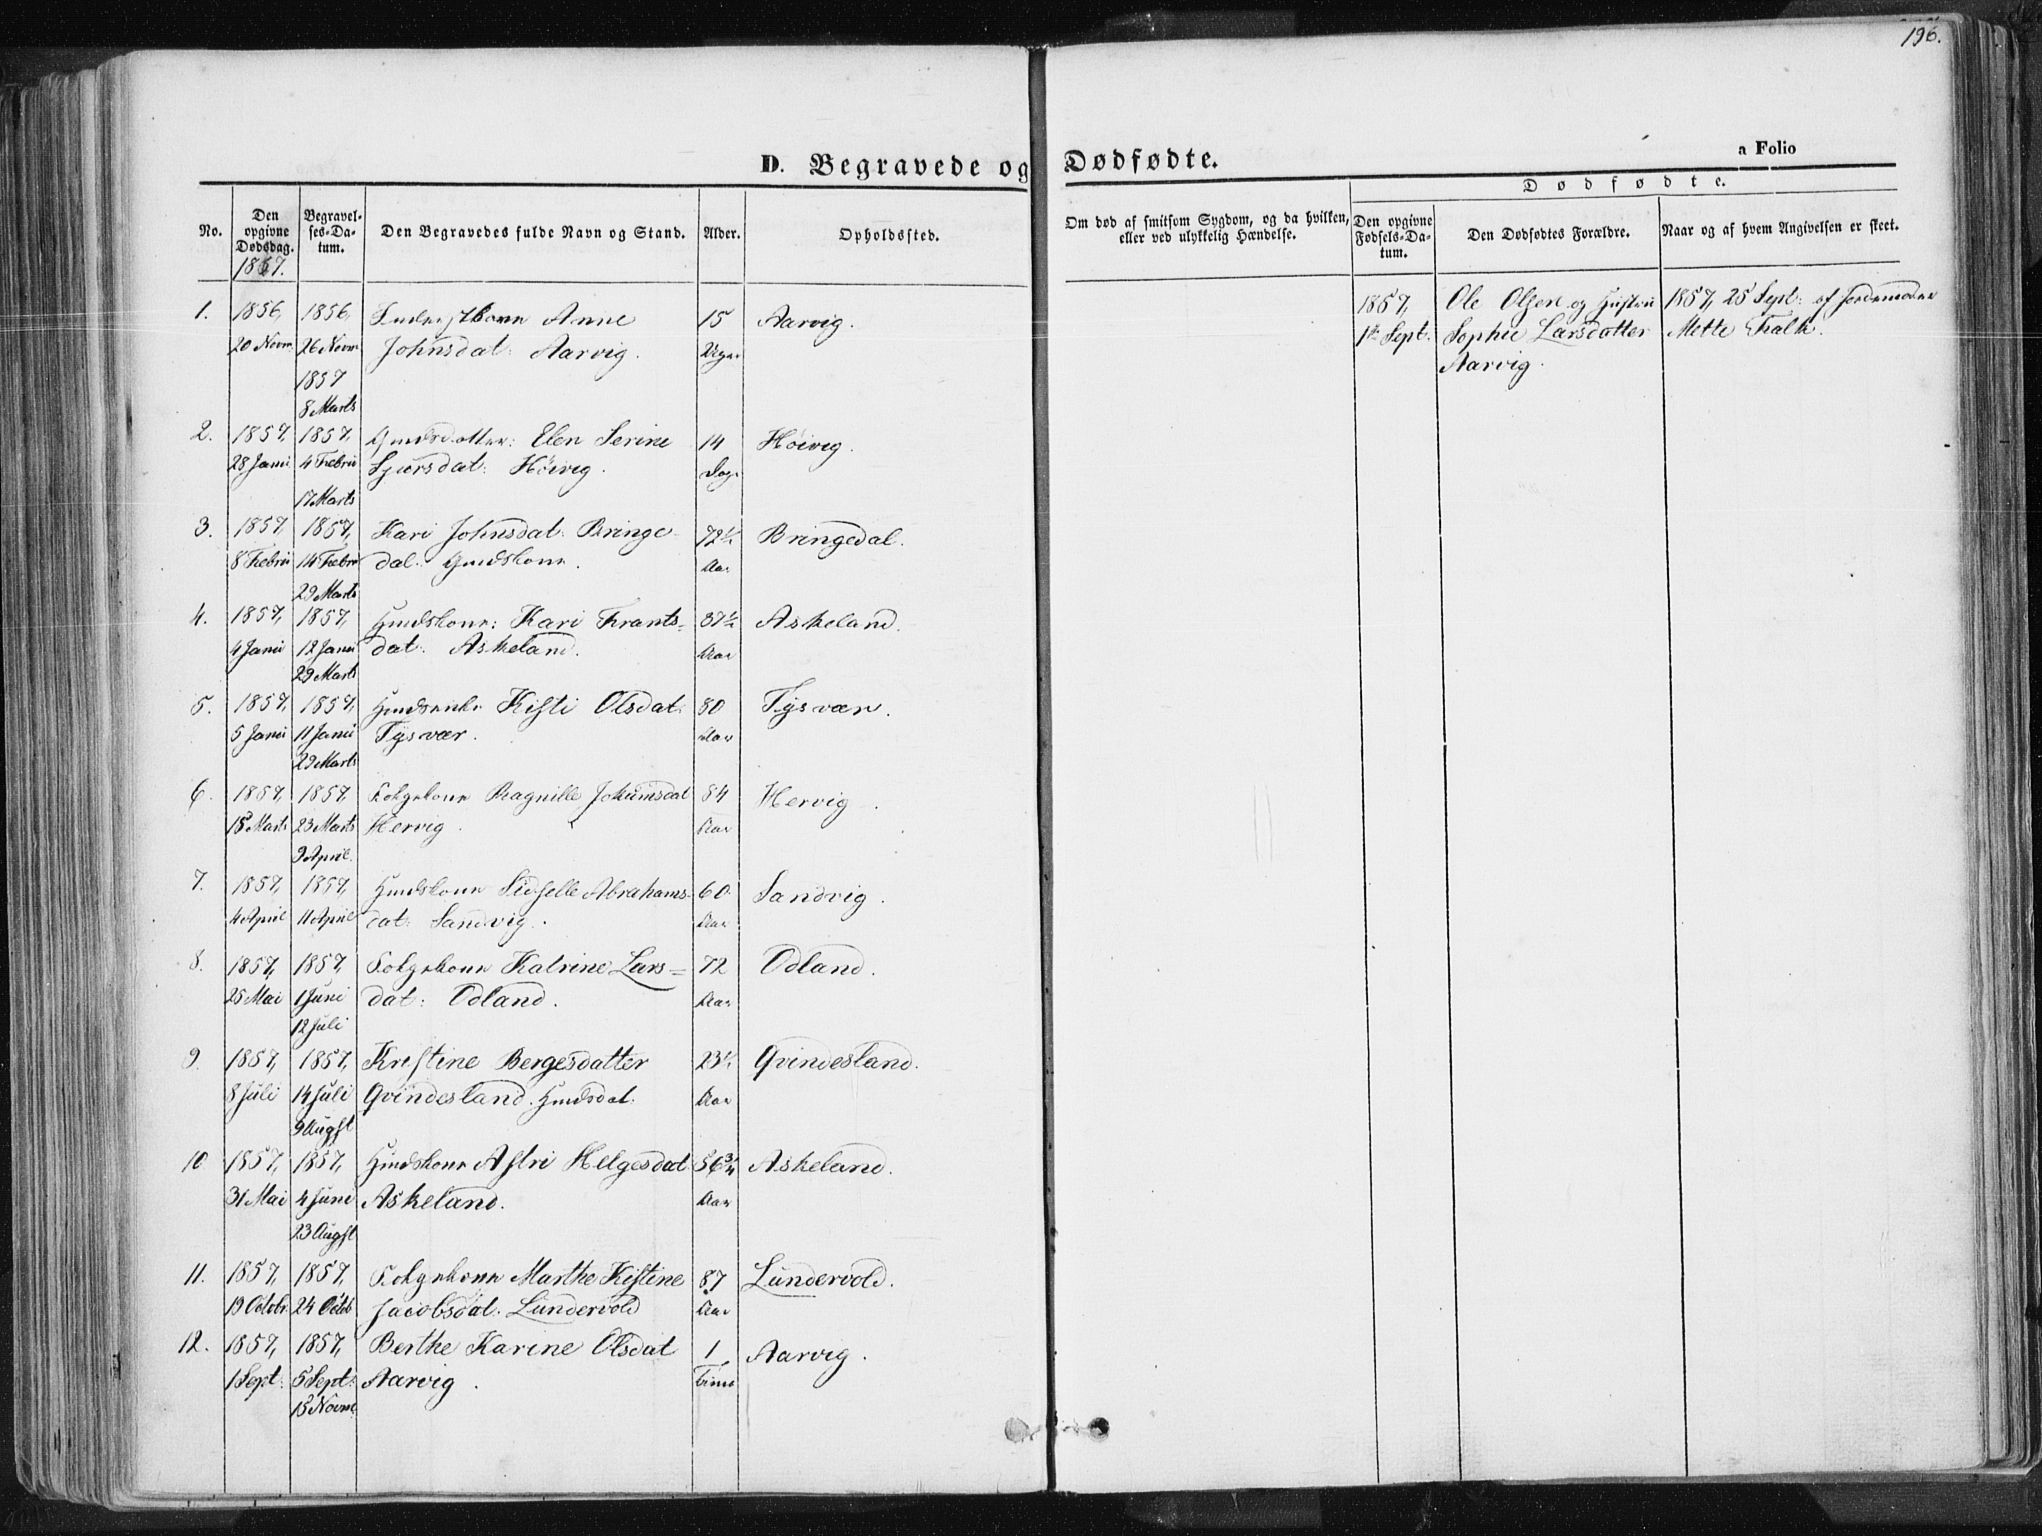 196.
D. Begravede og Dødfødte.
a Folio
No.
Den opgivne Dødsdag.
1857.
Begravelses-Datum.
Den Begravedes fulde Navn og Stand.
Alder.
Opholdssted.
Om død af smitsom Sygdom, og da hvilken, eller ved ulykkelig Hændelse.
Dødfødte.
Den opgivne Fødsels-Datum.
Den Dødfødtes Forældre.
Naar og af hvem Angivelsen er skeet.
1. 1856, 1856, Anne 15 Aarvig.
20 Novm. 26 Novm Johnsdat: Aarvig. Uger
1857
8 Marts
2. 1857, 1857, Elen Serine 14 Høivig.
28 Janu 4 Febru Sjursdat: Høivig. Dage
17 Marts
3. 1857 1857, Kari Johnsdat: Bringe- 72½ Bringedal.
8 Febru 14 Febru dal. Aar
29 Marts
4. 1857, 1857, Kari Frants- 37½ Askeland.
4 Janu 12 Janu dat: Askeland. Aar
29 Marts
5. 1857, 1857, Kisti Olsdat: 80 Tysvær.
5 Janu 11 Janu Tysvær. Aar
29 Marts
6. 1857, 1857 Ragnille Jokumsdat 84 Hervig.
15 Marts 23 Marts Hervig. Aar
9 April.
7. 1857, 1857, Sidselle Abrahams- 60 Sandvig.
4 April 11 April dat: Sandvig. Aar
8. 1857, 1857, Katrine Lars= 72 Odland.
25 Mai 1 Juni dat: Odland. Aar
12 Juli
9. 1857, 1857, Kristine Bergesdatter 23½ Qvindesland.
8 Juli 14 Juli Qvindesland. Aar
9 Augst
10 1857, 1857, Astri Helgesdat 56¾ Askeland.
31 Mai 4 Juni Askeland. Aar
23 Augst
11. 1857, 1857, Marthe Kistine 87 Lundervold.
19 Octobr. 24 Octb Jacobsdat. Lundervold Aar
12. 1857, 1857, Berthe Karine Olsdat 1 Aarvig.
1 Sept: 5 Sept: Aarvig. Time
15 Novm.
1857, Ole Olsen og Hustru 1857, 25 Sept: af Jordemoder
1ste Sept. Sophie Larsdatter Mette Falk.
Aarvig.